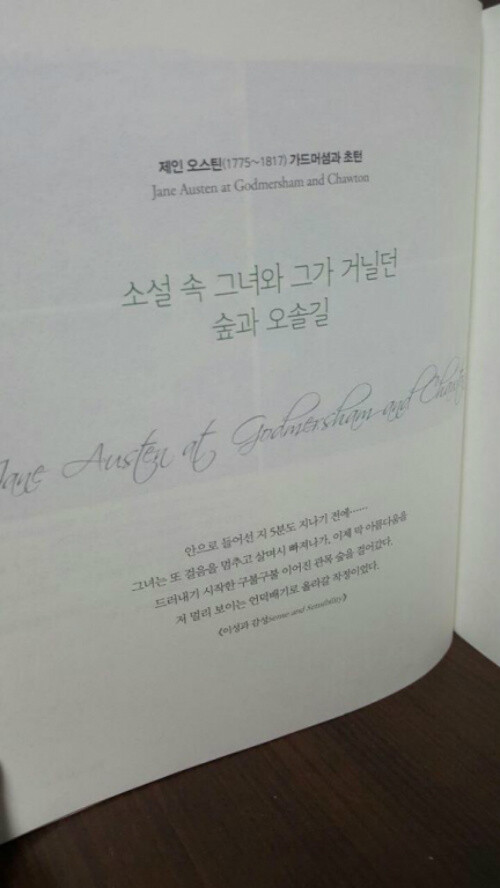 제인 오스틴(1775~1817) 가드머셤과 초턴
Jane Austen at Godmersham and Chawton
소설 속 그녀와 그가 거닐던
숲과 오솔길
Jane Austen at Godmersham and Chawt
안으로 들어선 지 5분도 지나기 전에……
그녀는 또 걸음을 멈추고 살며시 빠져나가, 이제 막 아름다움을
드러내기 시작한 구불구불 이어진 관목 숲을 걸어갔다.
저 멀리 보이는 언덕배기로 올라갈 작정이었다.
《이성과 감성Sense and Sensibility》